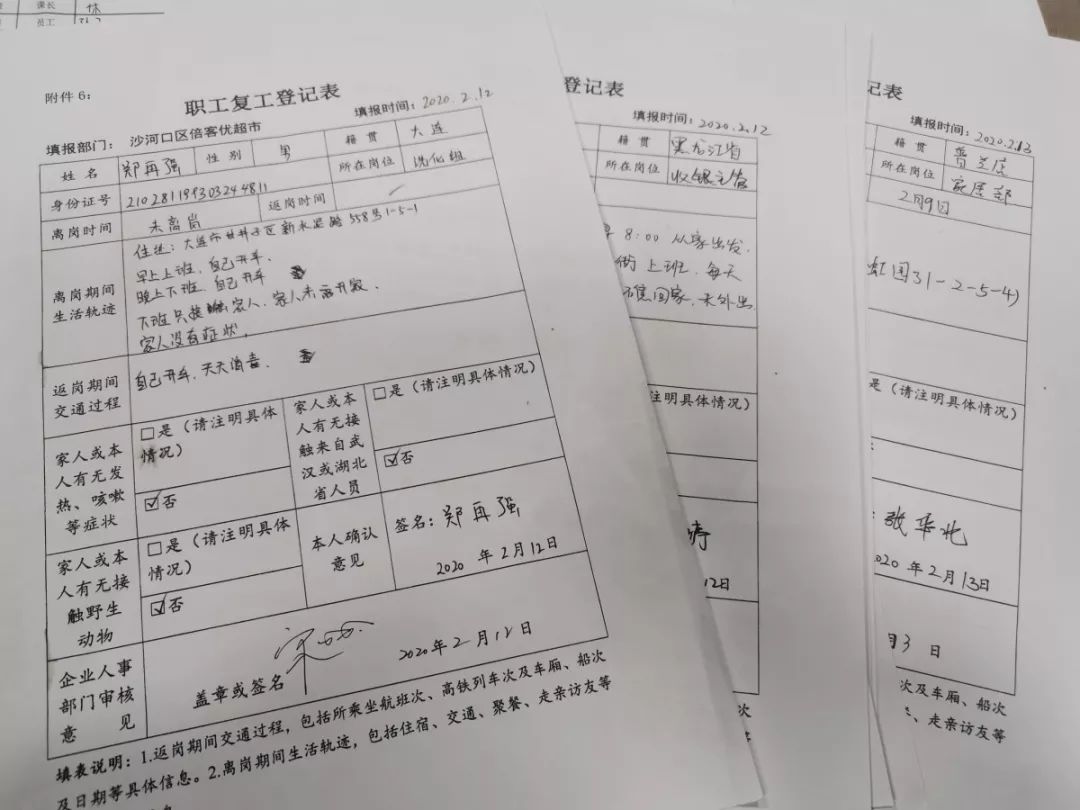 课长
员工
附件6:
职工复工登记表
填报部门: 沙河口区倍客优超市
填报时间: 2020.2.12
姓名 郑再强 性别 男 籍贯 大连
身份证号 210281199303244811 所在岗位 洗化组
离岗时间 未离岗 返岗时间
离岗期间生活轨迹
住址: 大连市甘井子区新水泥路558号1-5-1
早上上班, 自己开车
晚上下班, 自己开车
下班只接触家人, 家人未离开家,
家人没有症状,
返岗期间交通过程
自己开车, 天天消毒,
家人或本人有无发热、咳嗽等症状
□是(请注明具体情况)
☑否
家人或本人有无接触来自武汉或湖北省人员
□是(请注明具体情况)
☑否
家人或本人有无接触野生动物
□是(请注明具体情况)
☑否
本人确认意见
签名: 郑再强
2020年2月12日
企业人事部门审核意见
盖章或签名
2020年2月12日
填表说明: 1.返岗期间交通过程, 包括所乘坐航班次、高铁列车次及车厢、船次
及日期等具体信息。2.离岗期间生活轨迹, 包括住宿、交通、聚餐、走亲访友等
登记表
填报时间: 2020.2.12
籍贯 黑龙江省
所在岗位 收银主管
8:00 从家出发,
街 上班, 每天
回家, 未外出
注明具体情况)
12日
次
记表
填报时间: 2020.2.13
籍贯 普兰店
所在岗位 家居部
2月9日
虹园31-2-5-4)
是(请注明具体情况)
张华北
2020年2月13日
月3日
次及车厢、船次
、走亲访友等